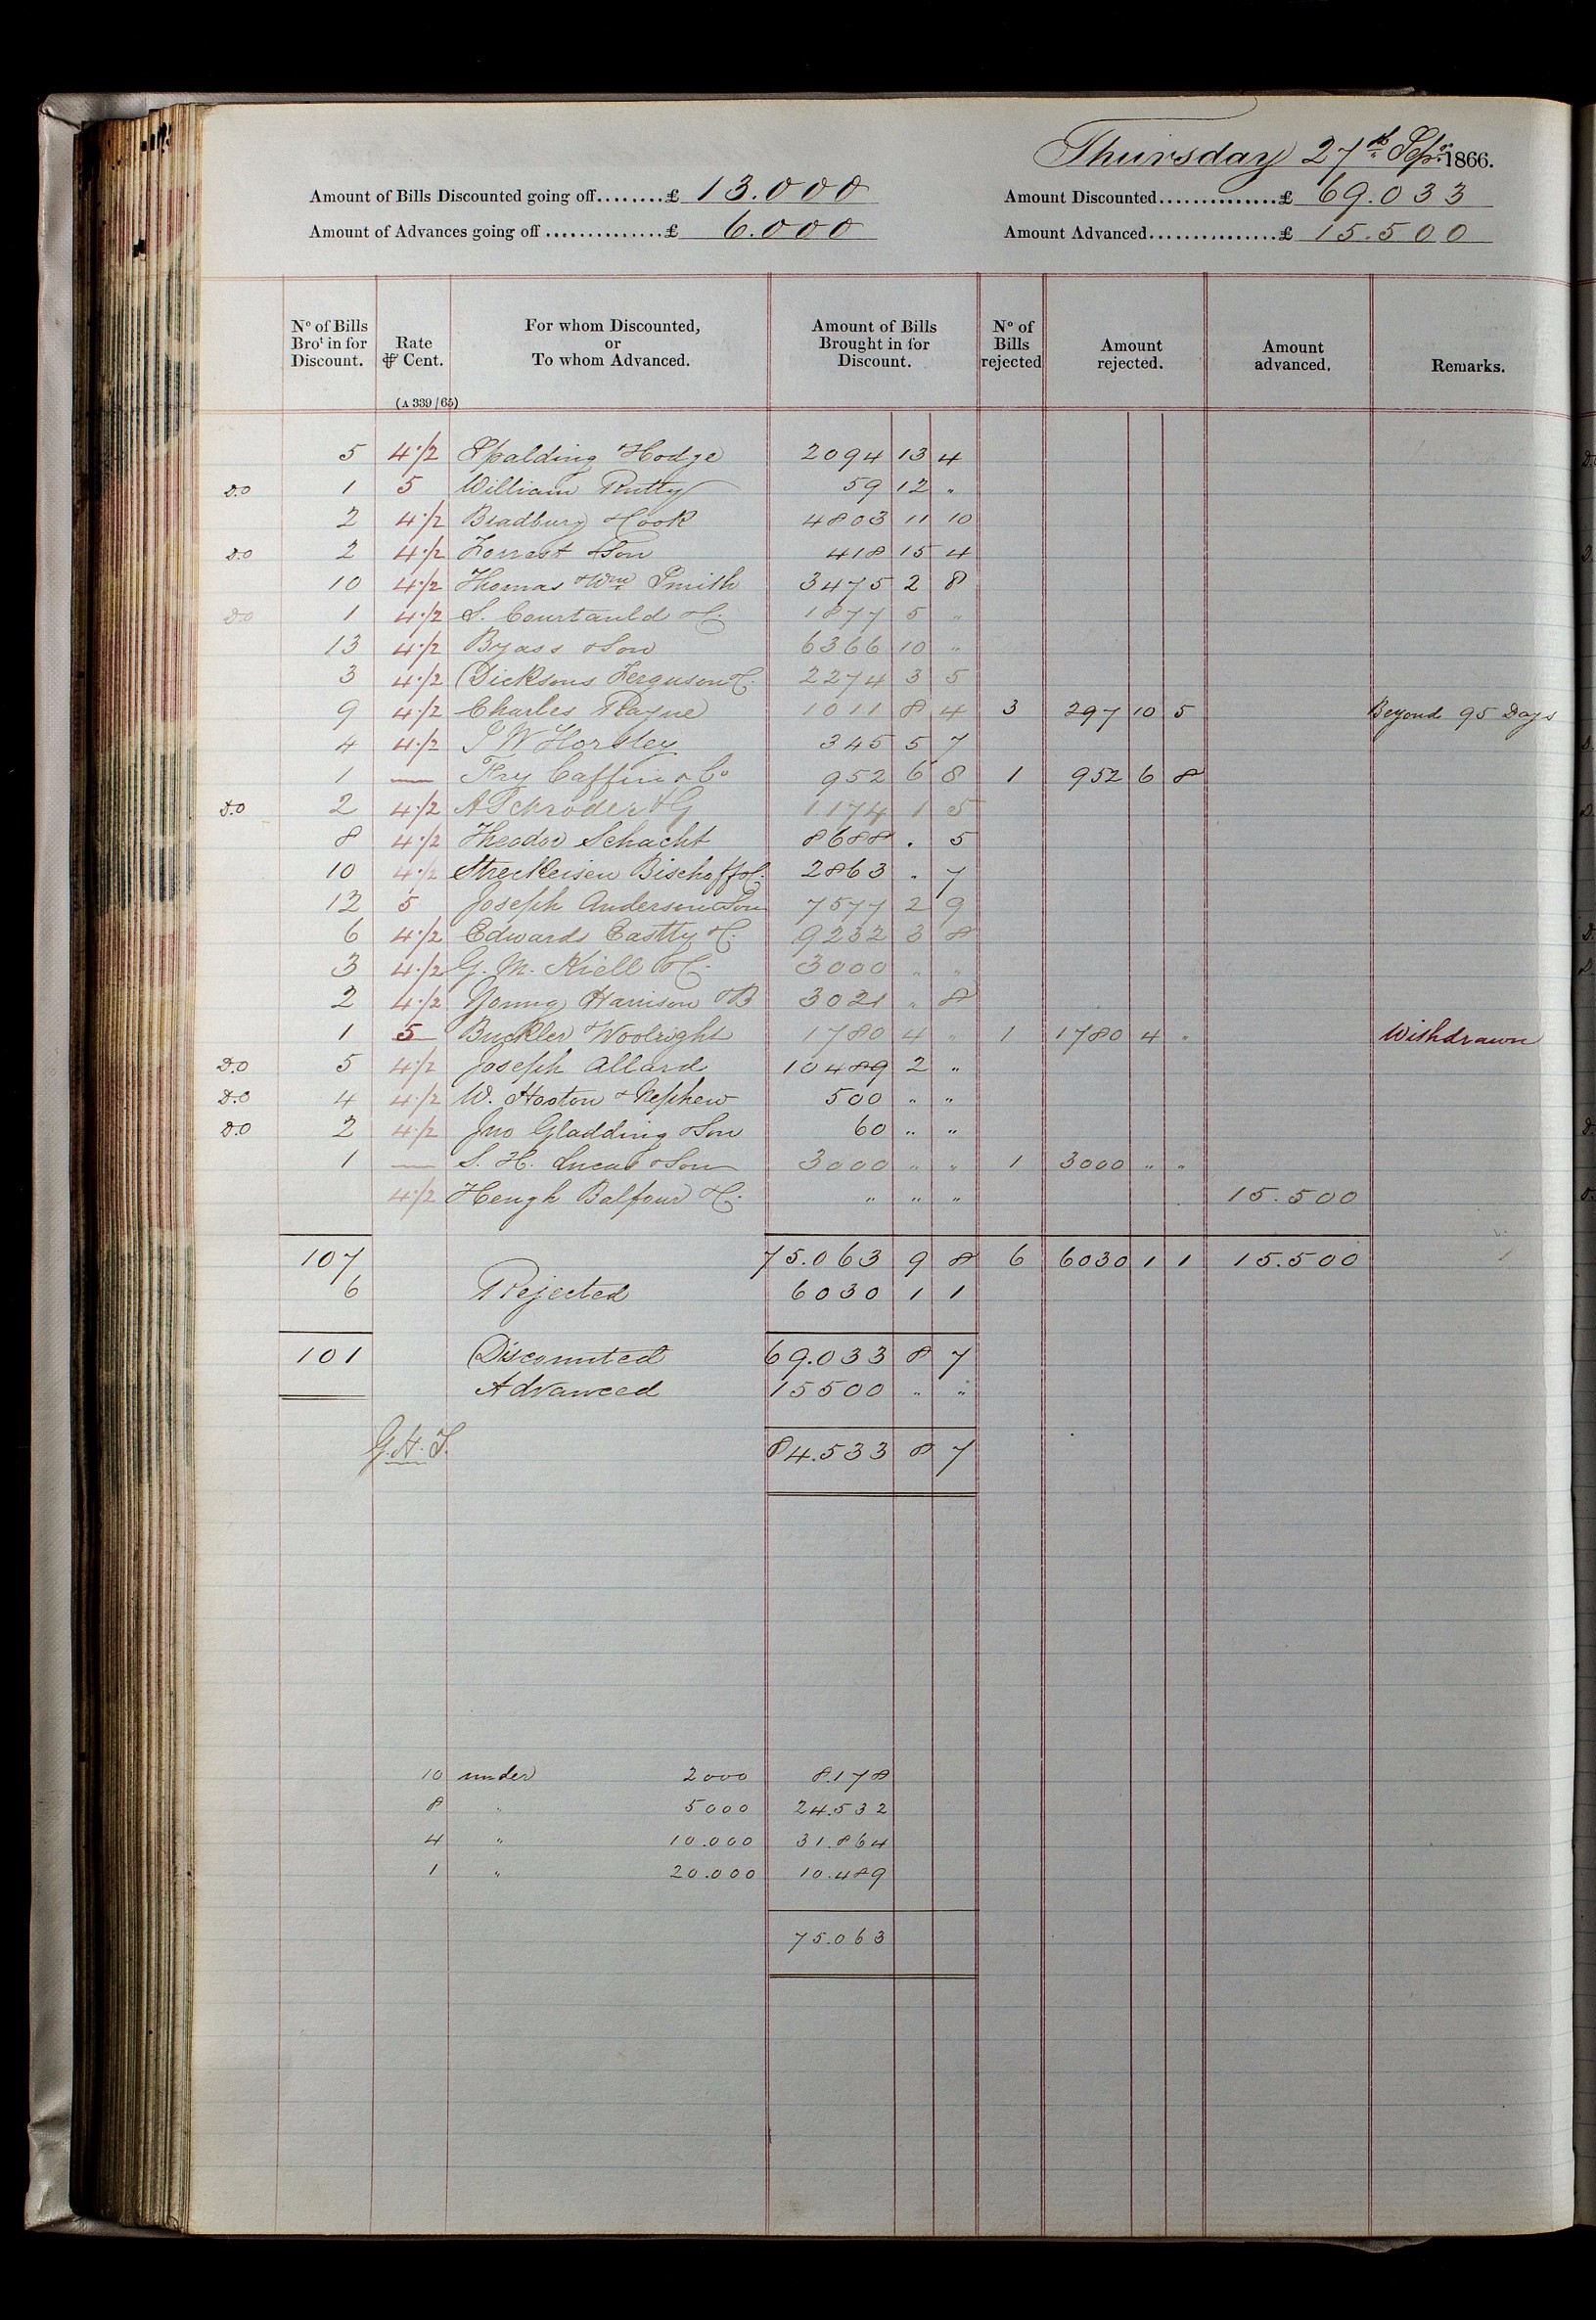 Thursday 27th Sepr 1866.
Amount of Bills Discounted going off........£ 13.000 Amount Discounted..............£ 69.033
Amount of Advances going off..............£ 6.000 Amount Advanced...............£ 15.500
No of Bills Brot in for Discount. Rate ⅌ Cent. For whom Discounted, or To whom Advanced. Amount of Bills Brought in for Discount. No of Bills rejected Amount rejected. Amount advanced. Remarks.
(A 339/65)
5 4½ Spalding & Hodge 2094 13 4
D.O 1 5 William Rutty 59 12 "
2 4½ Bradbury & Cook 4803 11 10
D.O 2 4½ Forrest & Son 418 15 4
10 4½ Thomas & Wm Smith 3475 2 8
D.O 1 4½ S. Courtauld & C. 1877 5 "
13 4½ Byass & Son 6366 10 "
3 4½ Dicksons Ferguson & C. 2274 3 5
9 4½ Charles Playne 1011 8 4 3 297 10 5 Beyond 95 Days
4 4½ Horsley 345 5 7
1 — Fry Caffin & Co 952 6 8 1 952 6 8
D.O 2 4½ A Schroder & C 1174 1 5
8 4½ Theodor Schacht 8688 . 5
10 4½ Streckeisen Bischoff & C. 2863 " 7
12 5 Joseph Anderson & Son 7577 2 9
6 4½ Edwards Eastty & C. 9232 3 8
3 4½ G. M. Kiell & C. 3000 " "
2 4½ Young Harrison & B 3021 " 8
1 5 Buckler & Woolright 1780 4 " 1 1780 4 " Withdrawn
D.O 5 4½ Joseph Allard 10489 2 "
D.O 4 4½ W. Hoston & Nephew 500 " "
D.O 2 4½ Jno Gladding & Son 60 " "
1 — S. H. Lucas & Son 3000 " " 1 3000 " "
4½ Heugh Balfour & C. " " " 15.500
107 75.063 9 8 6 6030 1 1 15.500
6 Rejected 6030 1 1
101 Discounted 69.033 8 7
Advanced 15500 " "
G.H.T. 84.533 8 7
10 under 2000 8.178
8 " 5000 24.532
4 " 10.000 31.864
1 " 20.000 10.489
75.063